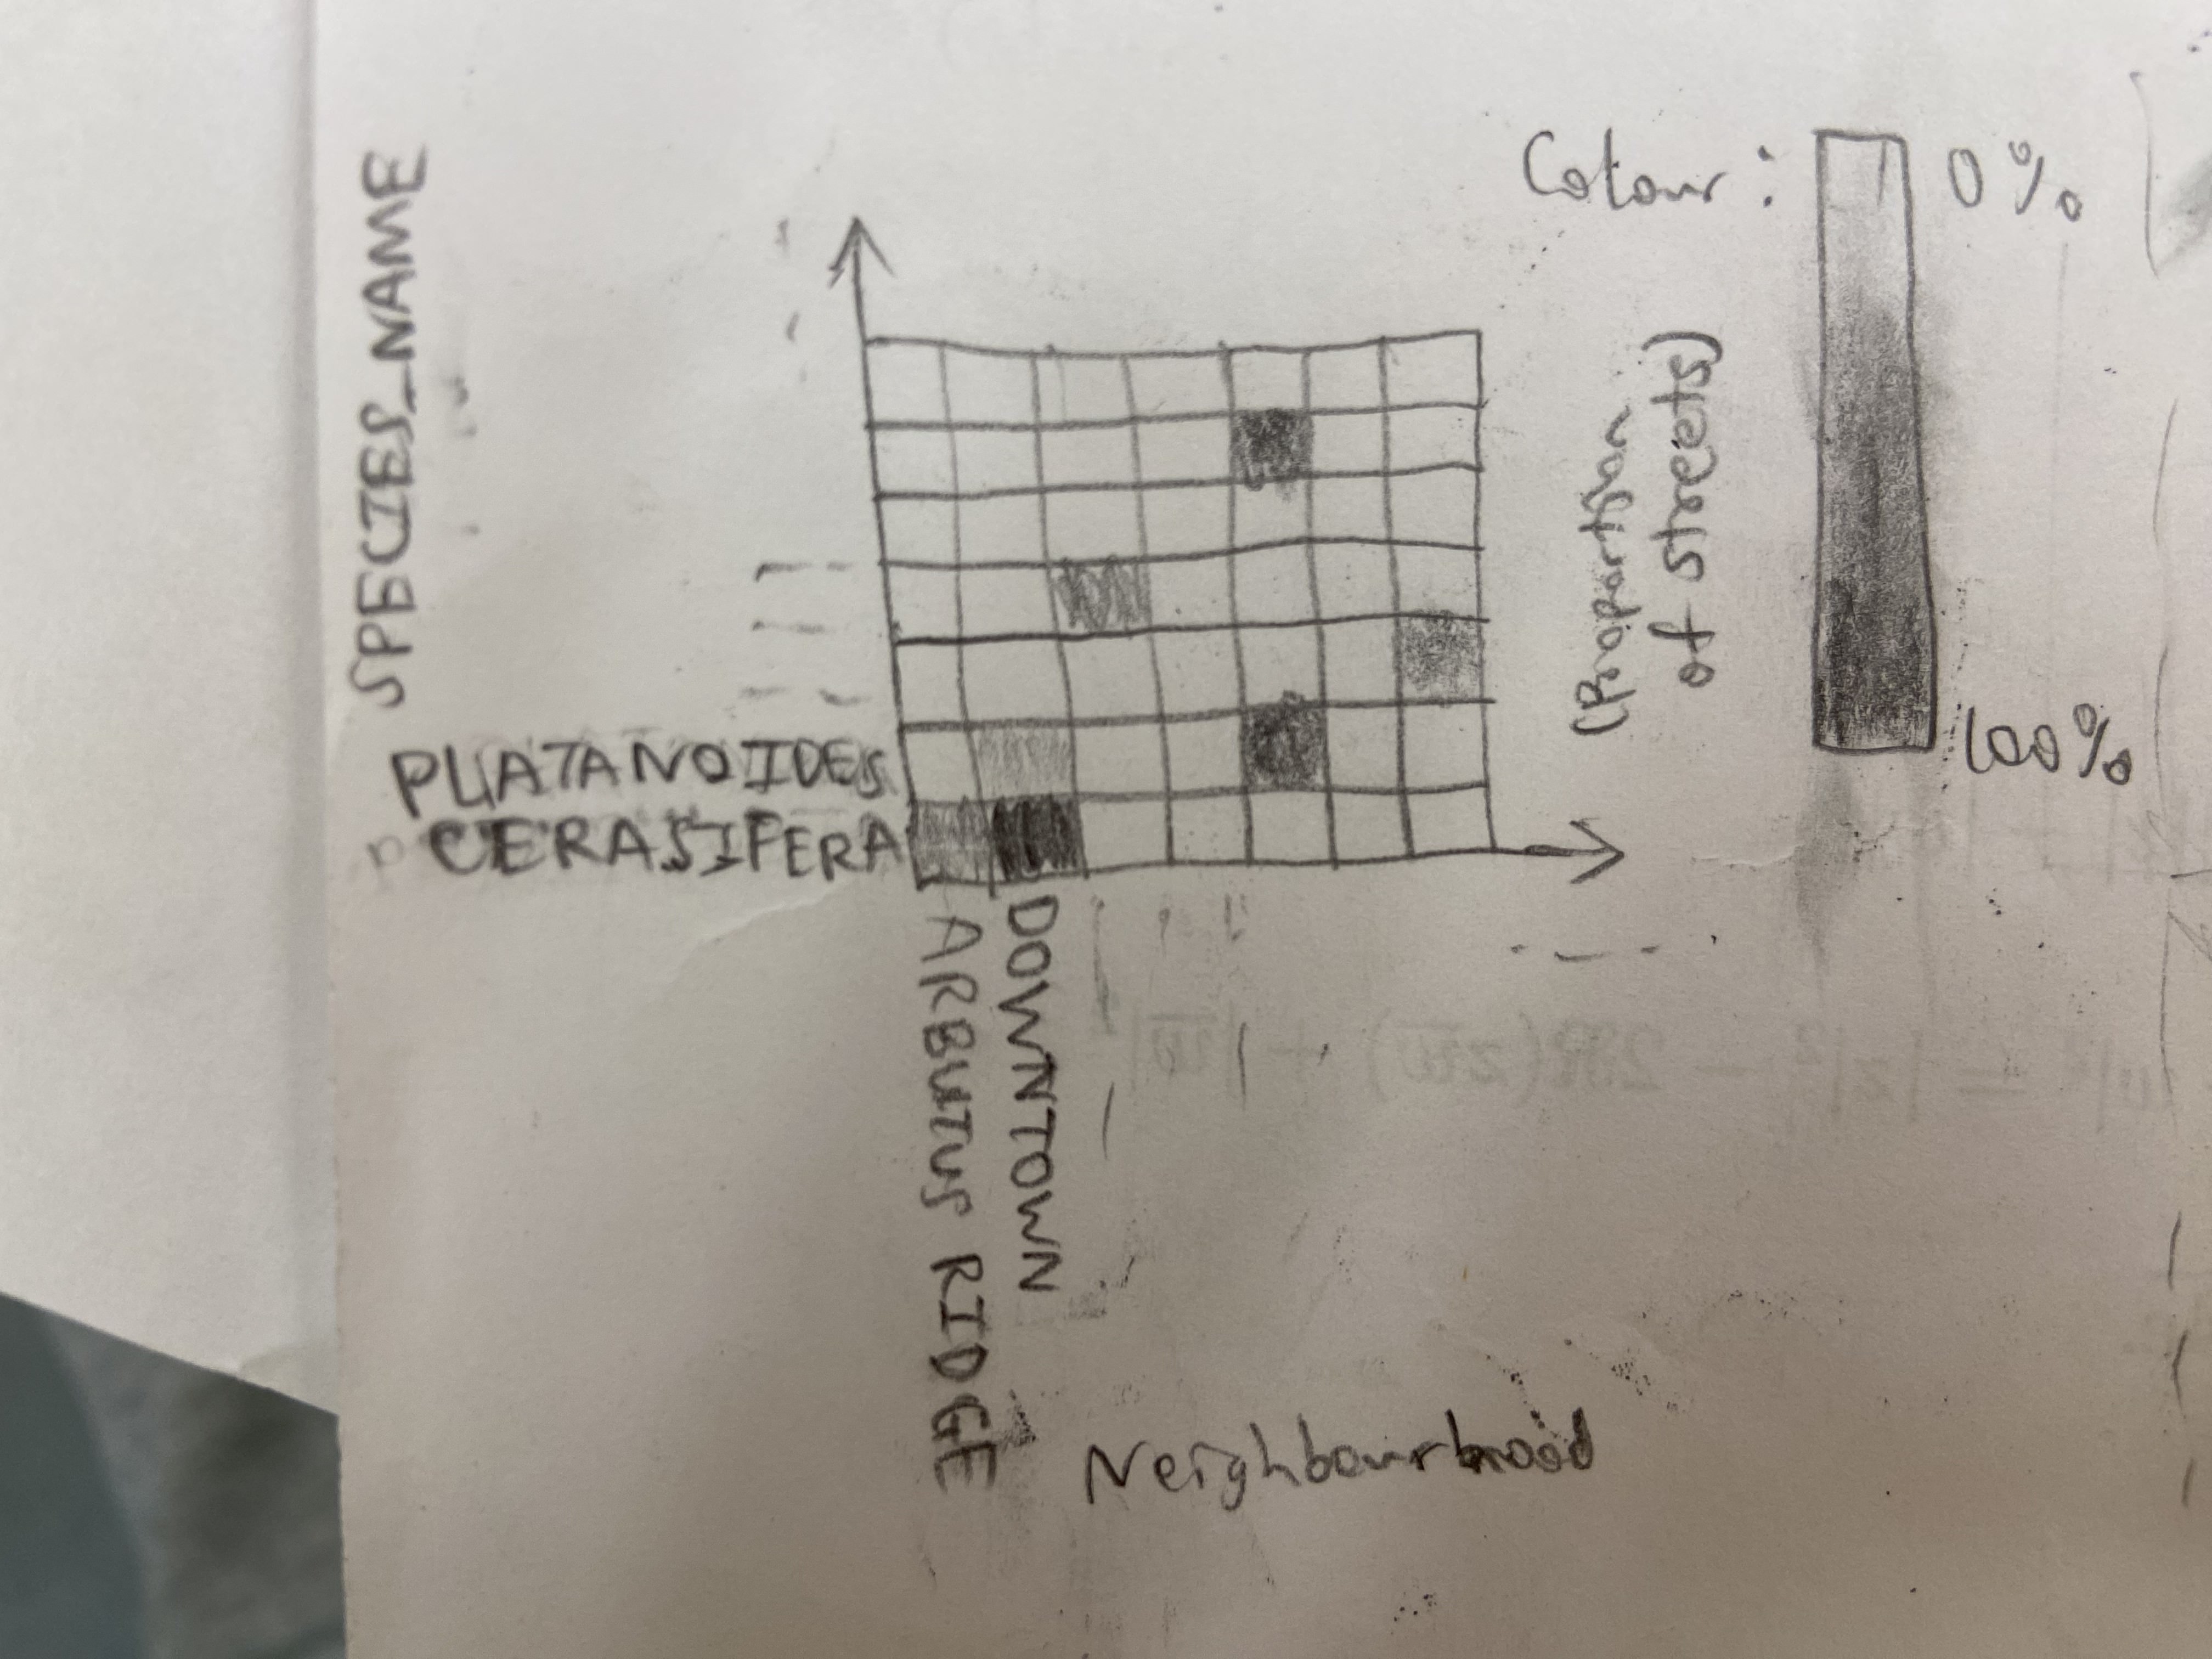 SPECIES_NAME
Colour:
0%
(Proportion
of streets)
100%
PLATANOIDES
CERASIFERA
ARBUTUS RIDGE
DOWNTOWN
Neighbourhood